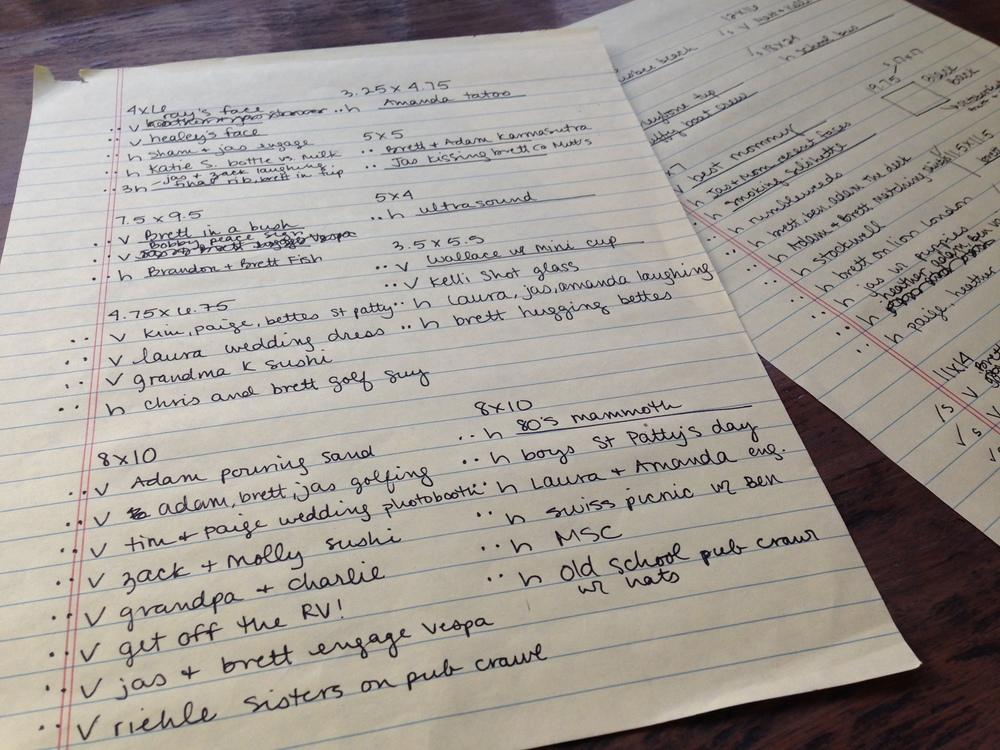 4x6
v ray's face
v healey's face
h sham & jas engage
h Katie S. bottle vs. milk
3h - jas & zack laughing
shae rib, brett in trip
7.5 x 9.5
v Brett in a bush
Bobby peace sign
v vespa
h Brandon + Brett Fish
4.75 x 6.75
v Kim, paige, bettes St patty
v laura wedding dress
v grandma K sushi
h chris and brett golf guy
8x10
v Adam pouring sand
v adam, brett, jas golfing
v tim & paige wedding photobooth
v zack + molly sushi
v grandpa + charlie
v get off the RV!
v jas & brett engage vespa
v riehle sisters on pub crawl
3.25 x 4.75
h Amanda tatoo
5x5
Brett & Adam Karmasutra
Jas kissing brett co mutts
5x4
h ultrasound
3.5 x 5.5
v wallace w/ mini cup
v Kelli Shot glass
h Laura, jas, amanda laughing
h brett hugging bettes
8x10
h 80's mammoth
h boys St Patty's day
h Laura + Amanda eng.
h swiss picnic w/ Ben
h MSC
h Old School pub crawl
w/ hats
18x24
h School bus
v best mommy
h Jas & Mom
h Smoking
h rumbleweeds
h brett, ben, adam
h Adam & Brett matching
h stockwell
h brett on lion London
h jas w/ puppies
h heather, adam, ben
h paige, heather
11x14